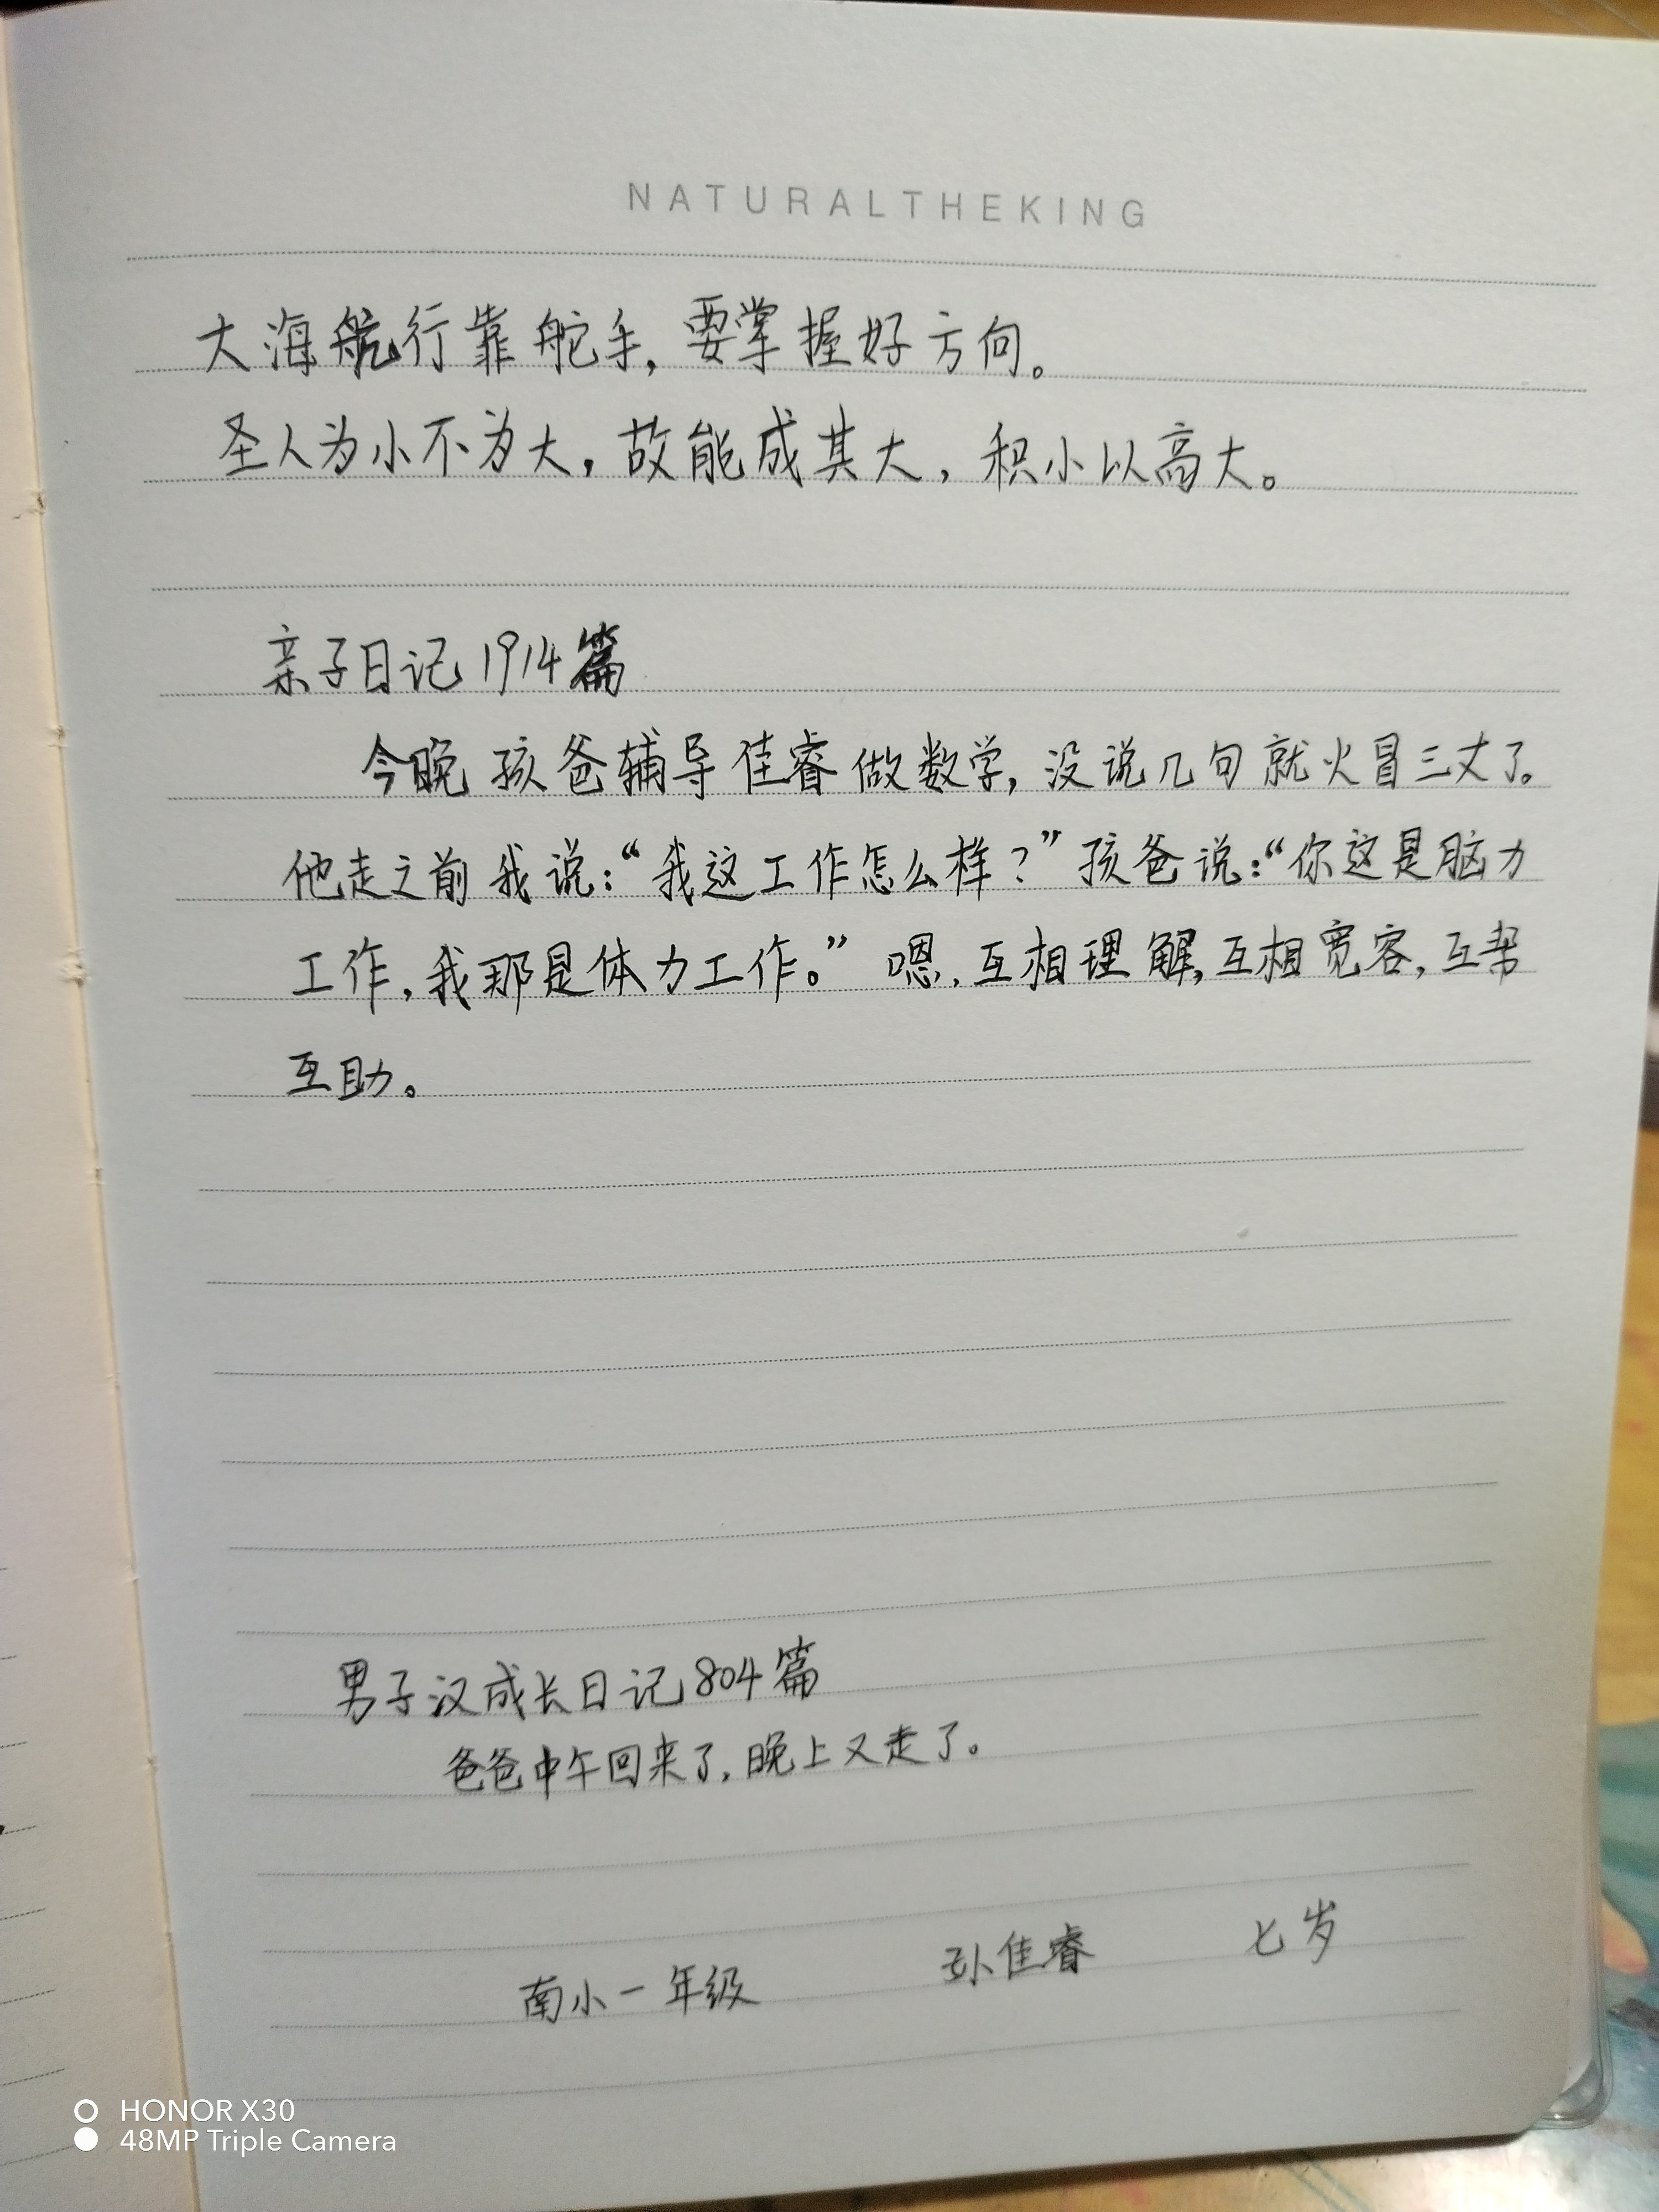 NATURALTHEKING
大海航行靠舵手,要掌握好方向。
圣人为小不为大,故能成其大,积小以高大。
亲子日记1914篇
今晚孩爸辅导佳睿做数学,没说几句就火冒三丈了。
他走之前我说:“我这工作怎么样?”孩爸说:“你这是脑力
工作,我那是体力工作。”嗯,互相理解,互相宽容,互帮
互助。
男子汉成长日记804篇
爸爸中午回来了,晚上又走了。
南小一年级 孙佳睿 七岁
HONOR X30
48MP Triple Camera